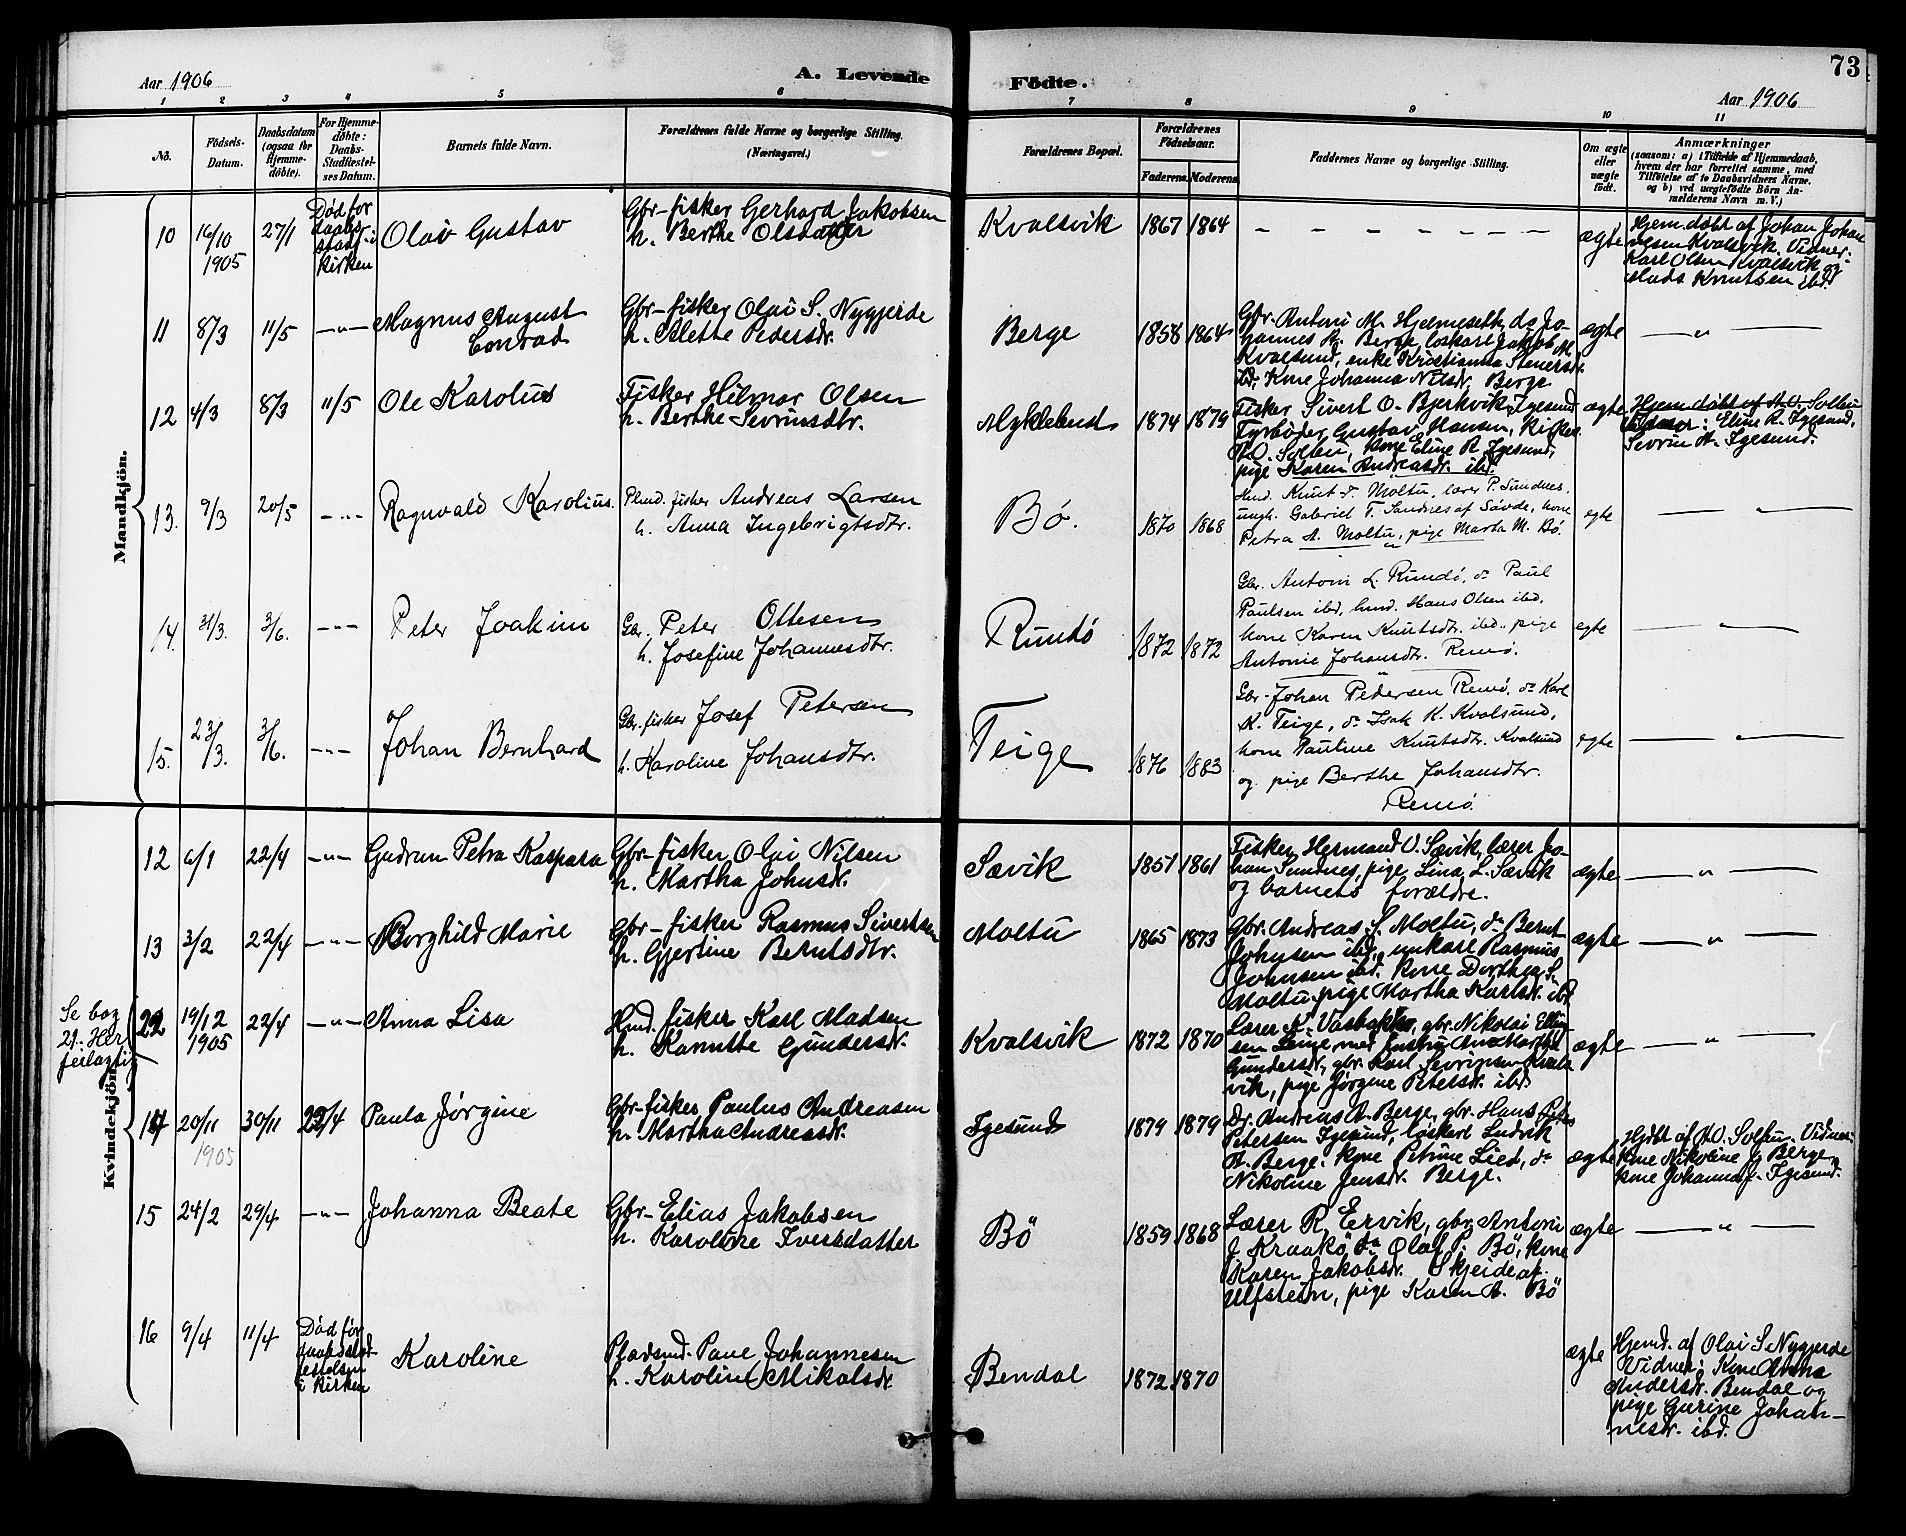 Aar 1906
A. Levende
Födte.
73
Aar 1906
1 2 3 4 5 6 7 8 9 10 11
No.
Födsels-Datum.
Daabsdatum (ogsaa for Hjemme-döbte).
For Hjemme-döbte: Daabs-Stadfæstel-ses Datum.
Barnets fulde Navn.
Forældrenes fulde Navne og borgerlige Stilling. (Næringsvei.)
Forældrenes Bopæl.
Forældrenes Födselsaar.
Faderens. Moderens.
Faddernes Navne og borgerlige Stilling.
Om ægte eller uægte födt.
Anmærkninger
(saasom: a) i Tilfælde af Hjemmedaab,
hvem der har forrettet samme, med
Tilföielse af to Daabsvidners Navne.
og b) ved uægtefödte Börn An-
melderens Navn m. V.)
Mandkjön.
10 16/10 1905 27/1 Død før daabs stadf. i kirken Olav Gustav
Gbr-fisker Gerhard Jakobsen
h. Berthe Olsdatter
Kvalsvik 1867 1864 – – – – – – – ægte
Hjem. døbt af Johan Johan
nesen Kvalsvik. Vidner:
Karl Olsen Kvalsvik og
Mads Knutsen ibd.
11 8/3 11/5 —„— Magnus August
Conrad
Gbr-fisker Olai S. Nygjerde
h. Alette Pedersdr.
Berge 1858 1864 ægte — „ —
Gbr. Antoni M. Hjelmeseth, do Jo-
hannes A. Berge, løskarl Jakob M.
Kvalsund, enke Kristianna Steffensdr.
ibd. Kone Johanna Nilsdr. Berge
12 4/3 8/3 11/5 Ole Karolus
Fisker Hilmar Olsen
h. Berthe Sevrinsdtr.
Myklebust 1874 1879 ægte
Fisker Sivert O. Bjerkvik, Igesund
Fyrbøder Gustav Hansen, Kirkes.
A.O. Solbu, kone Eline R. Igesund,
pige Karen Andreasdr. ibd.
Hjem døbt af A.O. Solbu
Vidner: Eline R. Igesund,
Sevrin A. Igesund.
13. 9/3 20/5 —„— Ragnvald Karolius.
Hmd. fisker Andreas Larsen
h. Anna Ingebrigtsdtr.
Bø. 1870 1868 egte — „ —
Hmd. Knut do Moltu, lærer P. Sundnes,
ungk. Gabriel T. Sandnes af Søvde, kone
Petra A. Moltu, pige Marta M. Bø.
14. 31/3. 3/6. —„— Peter Joakim
Gbr. Peter Ottesen
h. Josefine Johannesdtr.
Rundø 1872 1872 egte — „ —
Gbr. Antoni L. Rundø, do Paul
Paulsen ibd, hmd. Hans Olsen ibd,
kone Karen Knutsdtr. ibd., pige
Antonie Johansdtr. Remø.
15. 23/3. 3/6. —„— Johan Bernhard
Gbr. fisker Josef Petersen
h. Karoline Johansdtr.
Teige 1876 1883 egte — „ —
Gbr. Johan Pedersen Remø, do Karl
K. Teige, do Isak K. Kvalsund,
kone Pauline Knutsdtr. Kvalsund
og pige Berthe Johansdtr.
Remø
Kvindekjön.
12 6/1 22/4 —„— Gudrun Petra Kaspara
Gbr-fisker Olai Nilsen
h. Martha Johnsdr.
Sævik 1851 1861 ægte — „ —
Fisker Hermand O. Sævik, lærer Jo-
han Sundnes, pige Lina L. Sævik
og barnets forældre.
13 3/2 22/4 —„— Borghild Marie
Gbr-fisker Rasmus Sivertsen
h. Gjertine Berntsdtr.
Moltu 1865 1873 ægte — „ —
Gbr. Andreas S. Moltu, do Bernt
Johnsen ibd., unkarl Rasmus
Johnsen ibd. kone Dorthea S.
Moltu, pige Martha Karlsdr. ibd
Se bag
21. Her
feilagtig
22 19/12 1905 22/4 —„— Anna Lisa
Hmd. fisker Karl Madsen
h. Kanutte Gundersdr.
Kvalsvik 1872 1870 ægte — „ —
Lærer K. Vasbakke, gbr. Nikolai Elling-
sen Leine med hustru Ane Martha
Gundersdr, gbr. Karl Sevrinsen Kvals
vik, pige Jørgine Petersdr. ibd
14 20/11 1905 30/11 22/4 Paula Jørgine
Gbr-fisker Paulus Andreasen
h. Martha Andreasdr.
Igesund 1879 1879 ægte
Gr. Andreas A. Berge, gbr. Hans
Petersen Igesund, løskarl Ludvik
A. Berge. kone Petrine Lied, do
Nikoline Jensdr. Berge.
Hjdbt af A.O. Solbu. Vidner:
Kone Nikoline J. Berge,
kone Johanna J. Igesund.
15 24/2 29/4 —„— Johanna Beate
Gbr- Elias Jakobsen
h. Karoline Iversdatter
Bö 1859 1868 ægte — „ —
Lærer R. Ervik, gbr. Antoni
J Kraakö, do Olaf P. Bö, kone
Karen Jakobsdr. Skjeide af
Ulfstein, pige Karen A. Bö
16 9/4 11/4 Død før daabsstad festelsen i Kirken Karoline
Paul Johannesen
h. Karoline Mikalsdr
Bendal 1872 1870 ægte
Hjemd. af Olai S. Nygjerde
Vidner: Kone Anna
Andersdr. Bendal og
pige Gurine Johan-
nesdr. ibd.